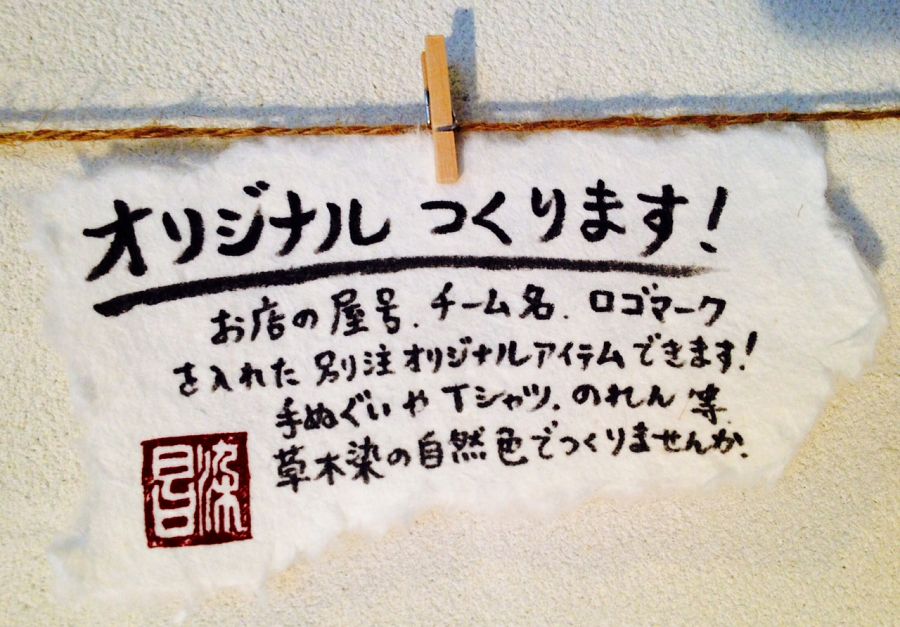 オリジナルつくります!
お店の屋号.チーム名.ロゴマーク
を入れた別注オリジナルアイテムできます!
手ぬぐいやTシャツ.のれん等
草木染の自然色でつくりませんか.